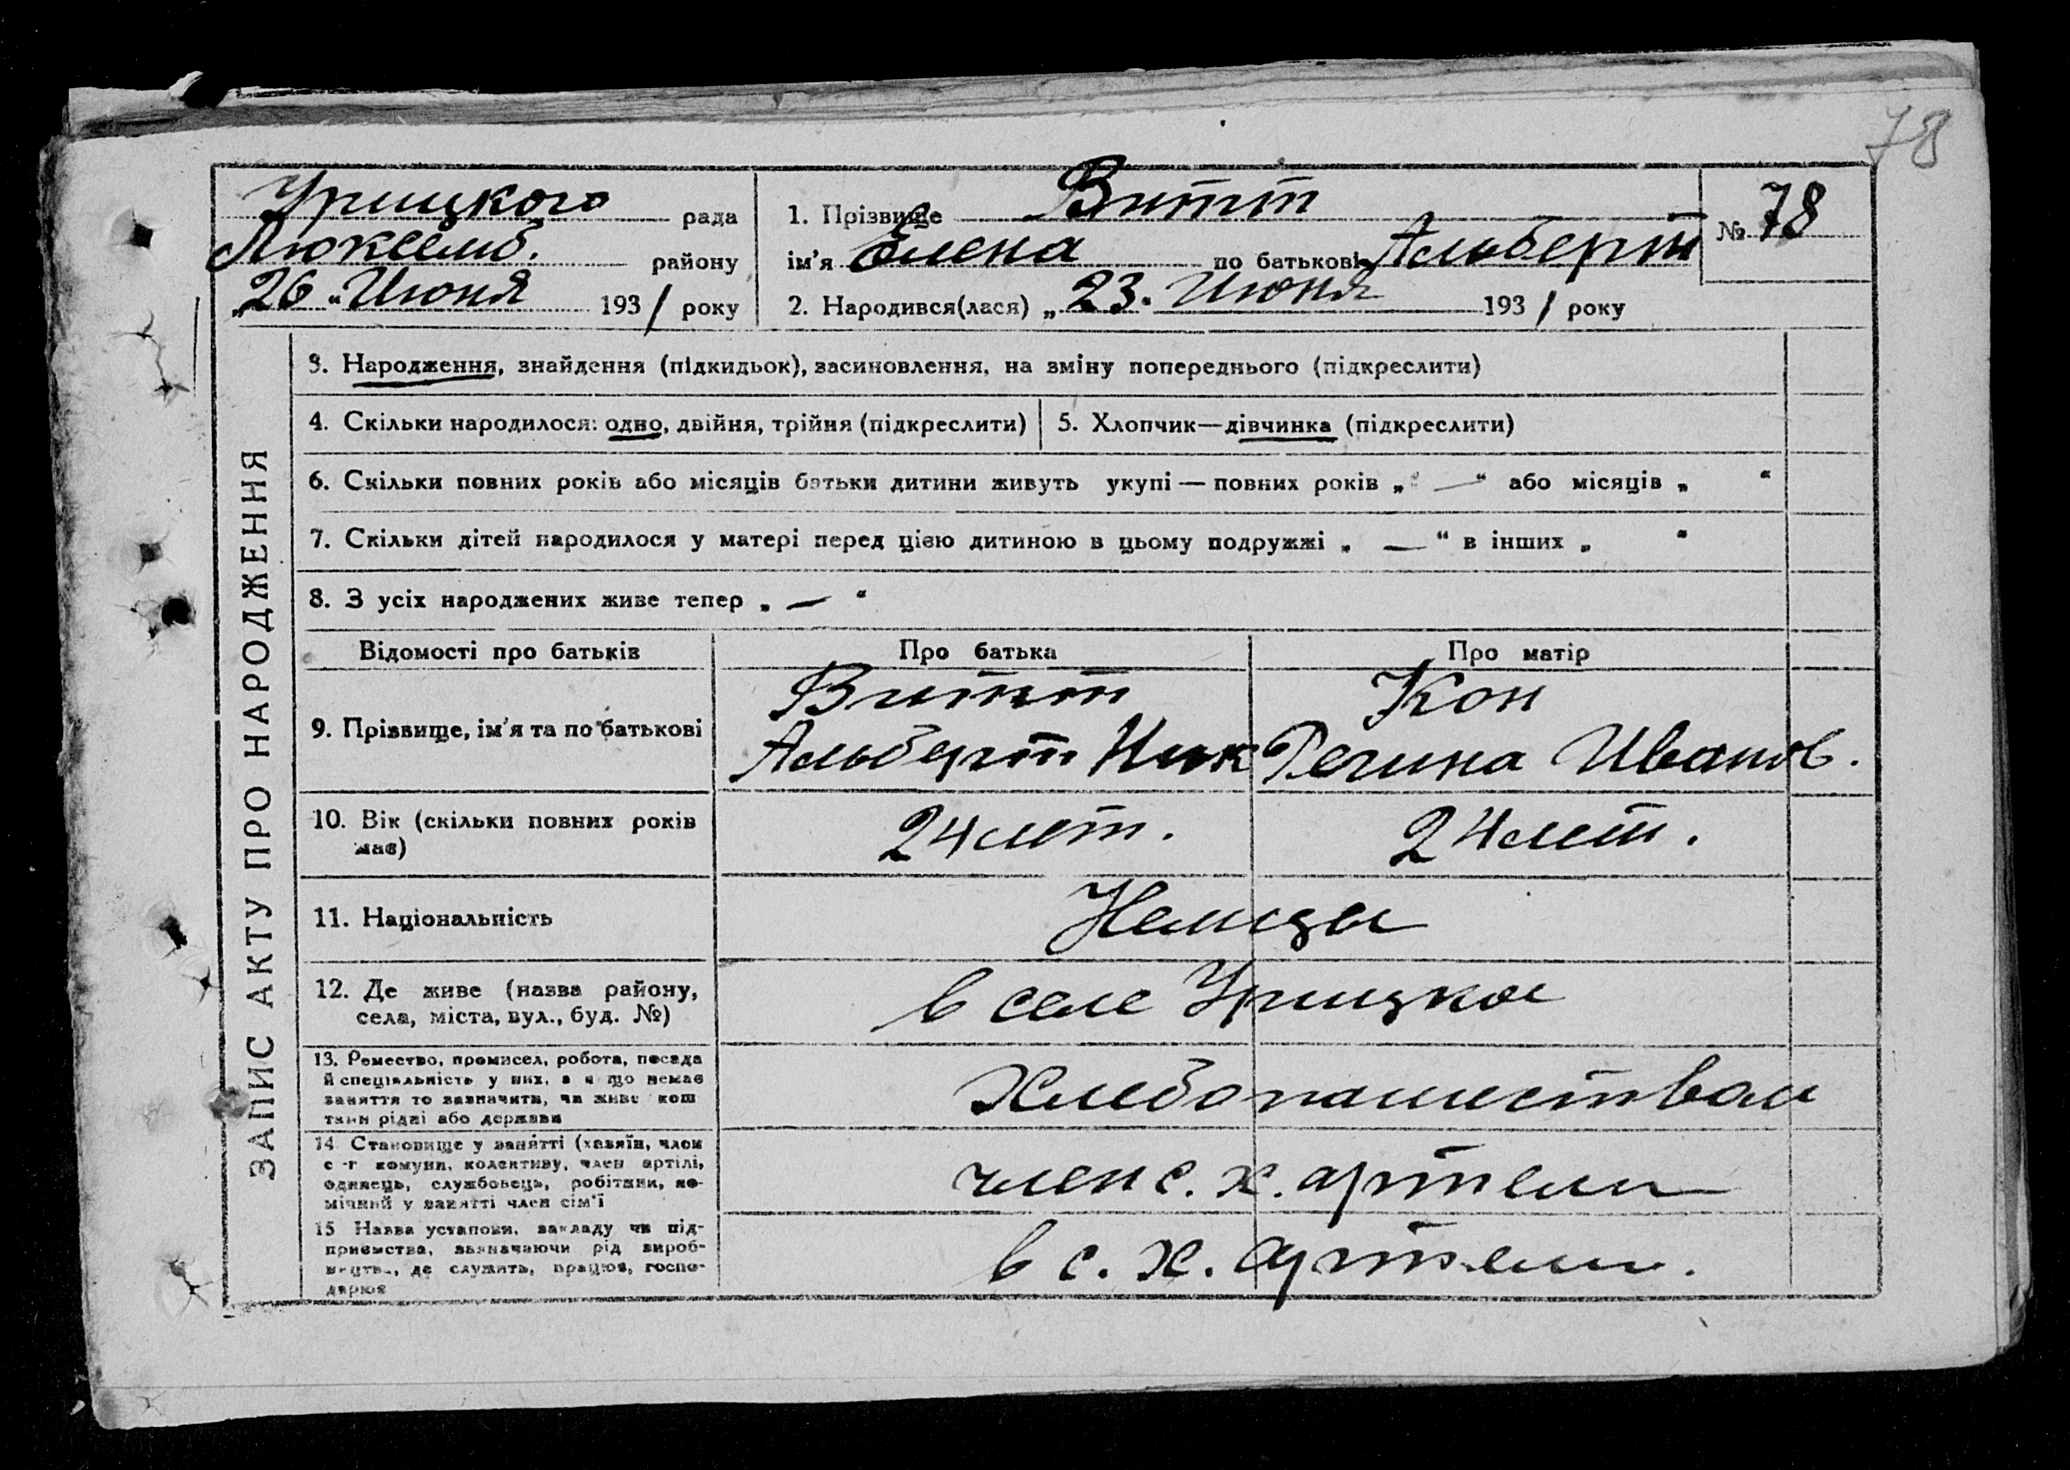 78
Урицкого рада
Люксемб. району
„26 „ Июня 1931 року
1. Прізвище Витт
ім'я Елена по батькові Альберт
2. Народився(лася) „23. Июня 1931 року
№ 78
ЗАПИС АКТУ ПРО НАРОДЖЕННЯ
3. Народження, знайдення (підкидьок), засиновлення, на зміну попереднього (підкреслити)
4. Скільки народилося: одно, двійня, трійня (підкреслити)
5. Хлопчик—дівчинка (підкреслити)
6. Скільки повних років або місяців батьки дитини живуть укупі — повних років „ — “ або місяців „ “
7. Скільки дітей народилося у матері перед цією дитиною в цьому подружжі „ — “ в інших „ “
8. З усіх народжених живе тепер „ — “
Відомості про батьків
Про батька
Про матір
9. Прізвище, ім'я та по батькові
Витт
Альберт Ник
Кон
Регина Иванов.
10. Вік (скільки повних років
має)
24 лет.
24 лет.
11. Національність
Немцы
12. Де живе (назва району,
села, міста, вул., буд. №)
в селе Урицкое
13. Ремество, промисел, робота, посада
й спеціяльність у них, а якщо немає
заняття то зазначити, чи живе кош
тами рідні або держави
Хлебопашеством
14. Становище у занятті (хазяїн, член
с.-г комуни, колективу, член артілі,
одинець, службовець, робітник, по-
мічний у занятті член сім'ї
член с. х. артели
15 Назва установи, закладу чи під-
приємства, зазначаючи рід вироб-
ництв., де служить, працює, госпо-
дарює
в с. х. артели.